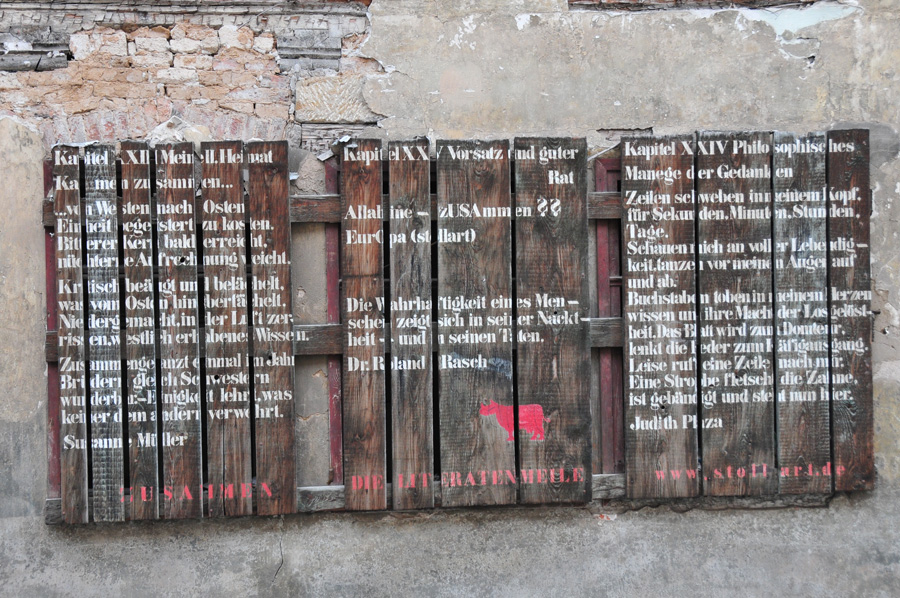 Kapitel XXII Metrull.Heimat
Kammen zu sammen...
...von Westen nach Osten
Einheit begeistert zu kosten.
Bitterer Kerl bald erreicht,
nichterne Aufregung weicht.
Kritisch beäugt und belächelt,
was vom Osten hinüberfächelt.
Niedergemacht.in der Luft zer-
rissen.westlich erhabenes Wissen.
Zusammengenzt einmal im Jahr
Brüdern gleich Schwestern
wunderbar-Einigkeit lehrt.was
keiner dem andern verwehrt.
Susanne Müller
ZUSAMMEN
Kapitel XX Vorsatz und guter
Rat
Allat ine - zUSAmmen ??
EurOpa (stollart)
Die Wahrhaftigkeit eines Men-
schen zeigt sich in seiner Nackt-
heit - und in seinen Taten.
Dr. Roland Rasch
DIE LITERATENMEILE
Kapitel XXIV Philosophisches
Manege der Gedanken
Zeilen schweben in meinem Kopf.
für Sekunden, Minuten, Stunden,
Tage.
Schauen mich an voller Lebendig-
keit,tanzen vor meinen Augen auf
und ab.
Buchstaben toben in meinem herzen
wissen um ihre Macht der Losgelöst-
heit.Das Blatt wird zum Dompteur,
lenkt die Feder zum Käfigausgang.
Leise ruft eine Zeile nach mir.
Eine Strophe fletscht die Zähne,
ist gebändigt und steht nun hier.
Judith Plaza
www.stoll-art.de